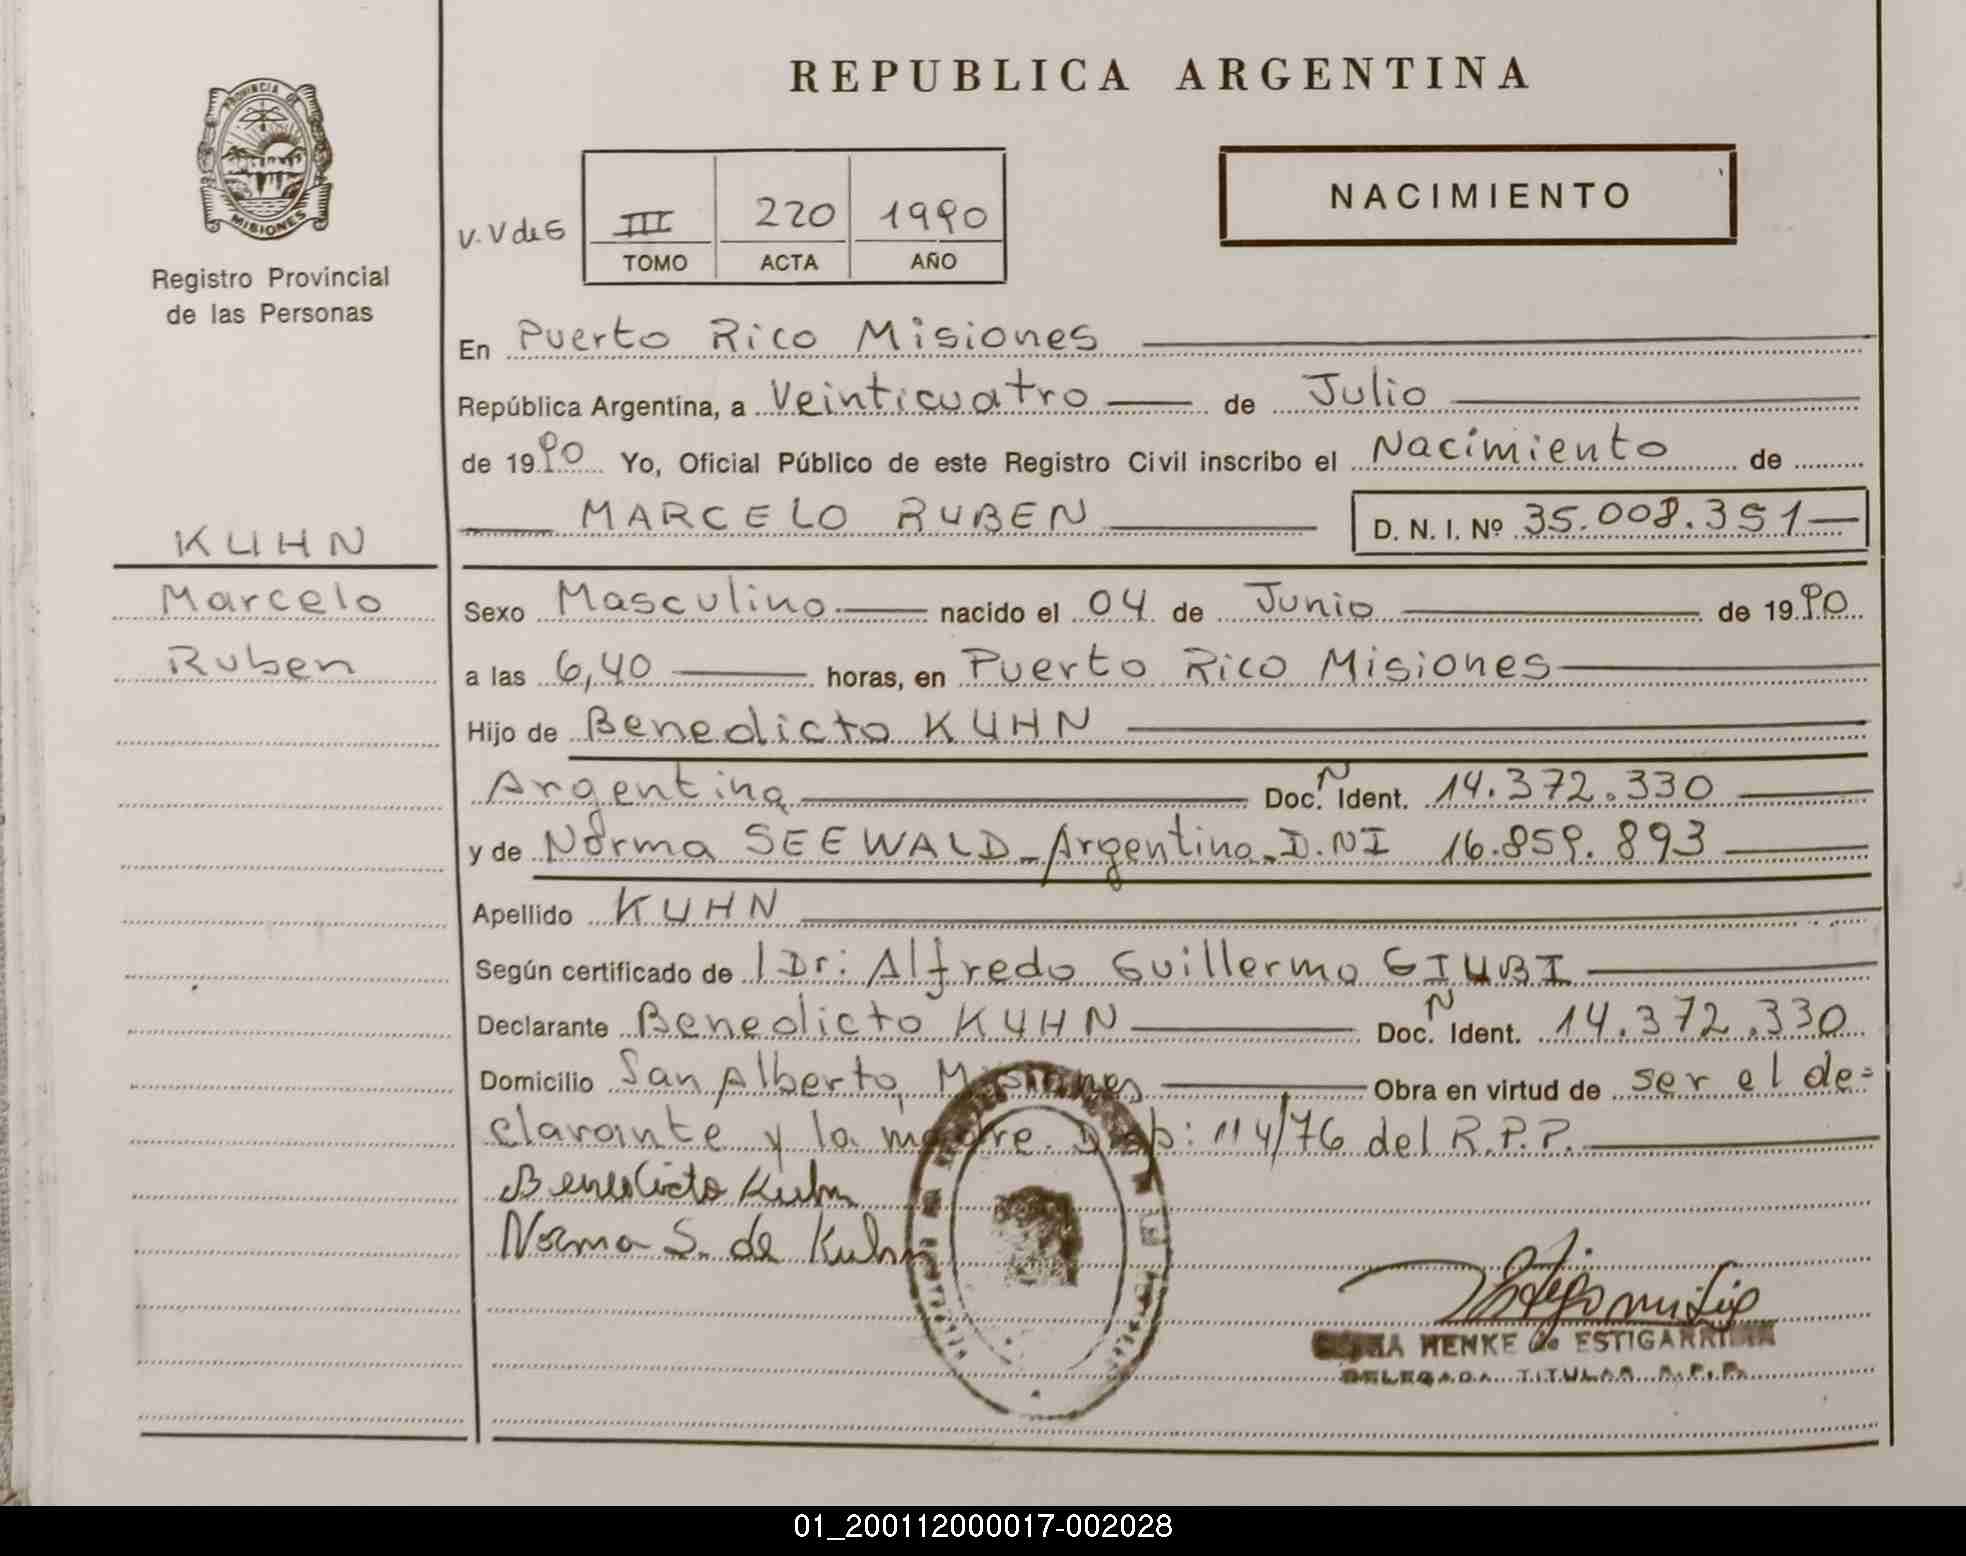 REPUBLICA ARGENTINA
PROVINCIA DE
MISIONES
Registro Provincial
de las Personas
V.V de G
III 220 1990
TOMO ACTA AÑO
NACIMIENTO
En Puerto Rico Misiones
República Argentina, a Veinticuatro de Julio
de 1990 Yo, Oficial Público de este Registro Civil inscribo el Nacimiento de
MARCELO RUBEN D. N. I. Nº 35.008.351
KUHN
Marcelo
Ruben
Sexo Masculino nacido el 04 de Junio de 1990
a las 6,40 horas, en Puerto Rico Misiones
Hijo de Benedicto KUHN
Argentina Doc. N Ident. 14.372.330
y de Norma SEEWALD_Argentina_D.NI 16.859.893
Apellido KUHN
Según certificado de l Dr: Alfredo Guillermo GIUBI
Declarante Benedicto KUHN Doc. N Ident. 14.372.330
Domicilio San Alberto, Misiones Obra en virtud de ser el de=
clarante y la madre. Disp: 114/76 del R.P.P.
Benedicto Kuhn
Norma S. de Kuhn
HENKE de ESTIGARRIBIA
DELEGADA TITULAR R.P.P.
01_200112000017-002028